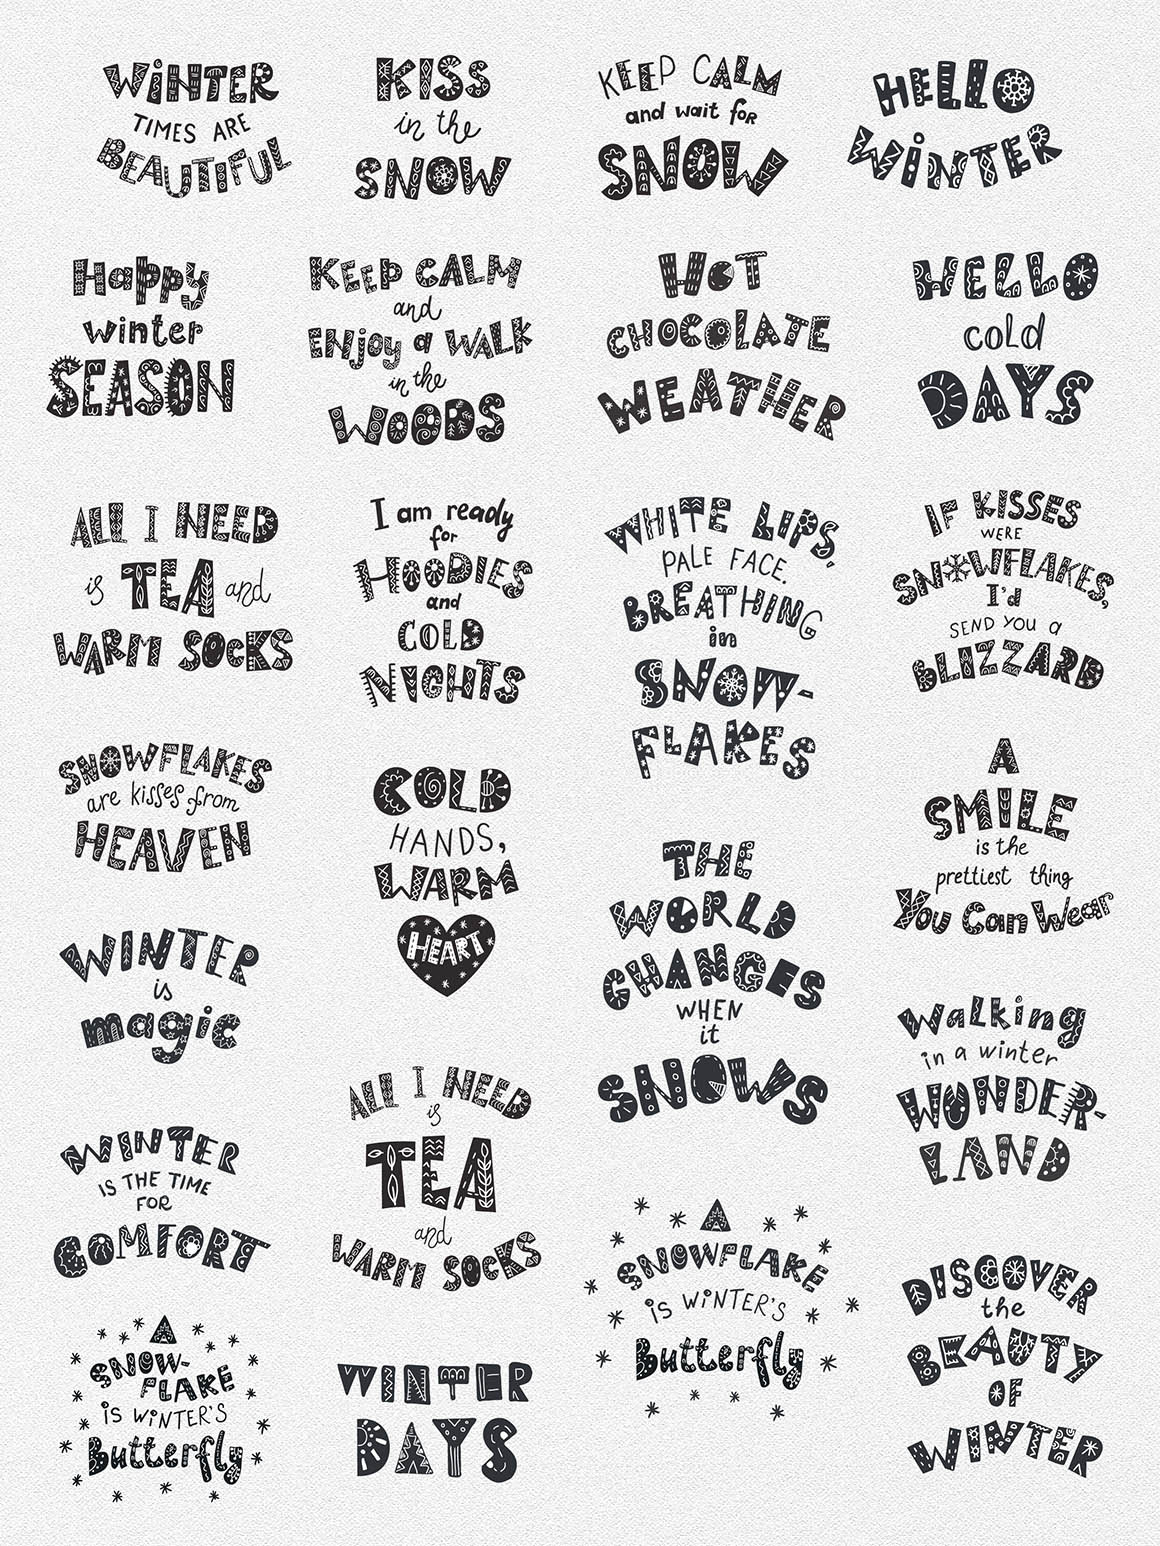 WiNTER
TIMES ARE
BEAUTIFUL
KISS
in the
SNOW
KEEP CALM
and wait for
SNOW
HELLO
WiNTER
Happy
winter
SEASON
KEEP CALM
and
ENjoy a WALK
in the
WOODS
HOT
CHOCOLATE
WEATHER
HELLO
cold
DAYS
ALL I NEED
is TEA and
WARM SOCKS
I am ready
for
HOODIES
and
COLD
NiGHTS
WHITE LIPS,
PALE FACE.
BREATHING
in
SNOW-
FLAKES
IF KISSES
WERE
SNOWFLAKES,
I'd
SEND YOU a
BLIZZARD
SNOWFLAKES
are kisses from
HEAVEN
COLD
HANDS,
WARM
HEART
A
SMILE
is the
prettiest thing
You Can Wear
THE
WORLD
CHANGES
WHEN
it
SNOWS
WINTER
is
magic
Walking
in a winter
WONDER-
LAND
ALL I NEED
is
TEA
and
WARM SOCKS
WINTER
IS THE TIME
FOR
COMFORT
A
SNOWFLAKE
is WiNTER'S
Butterfly
DISCOVER
the
BEAUTY
OF
WINTER
A
SNOW-
FLAKE
iS WiNTER'S
Butterfly
WINTER
DAYS